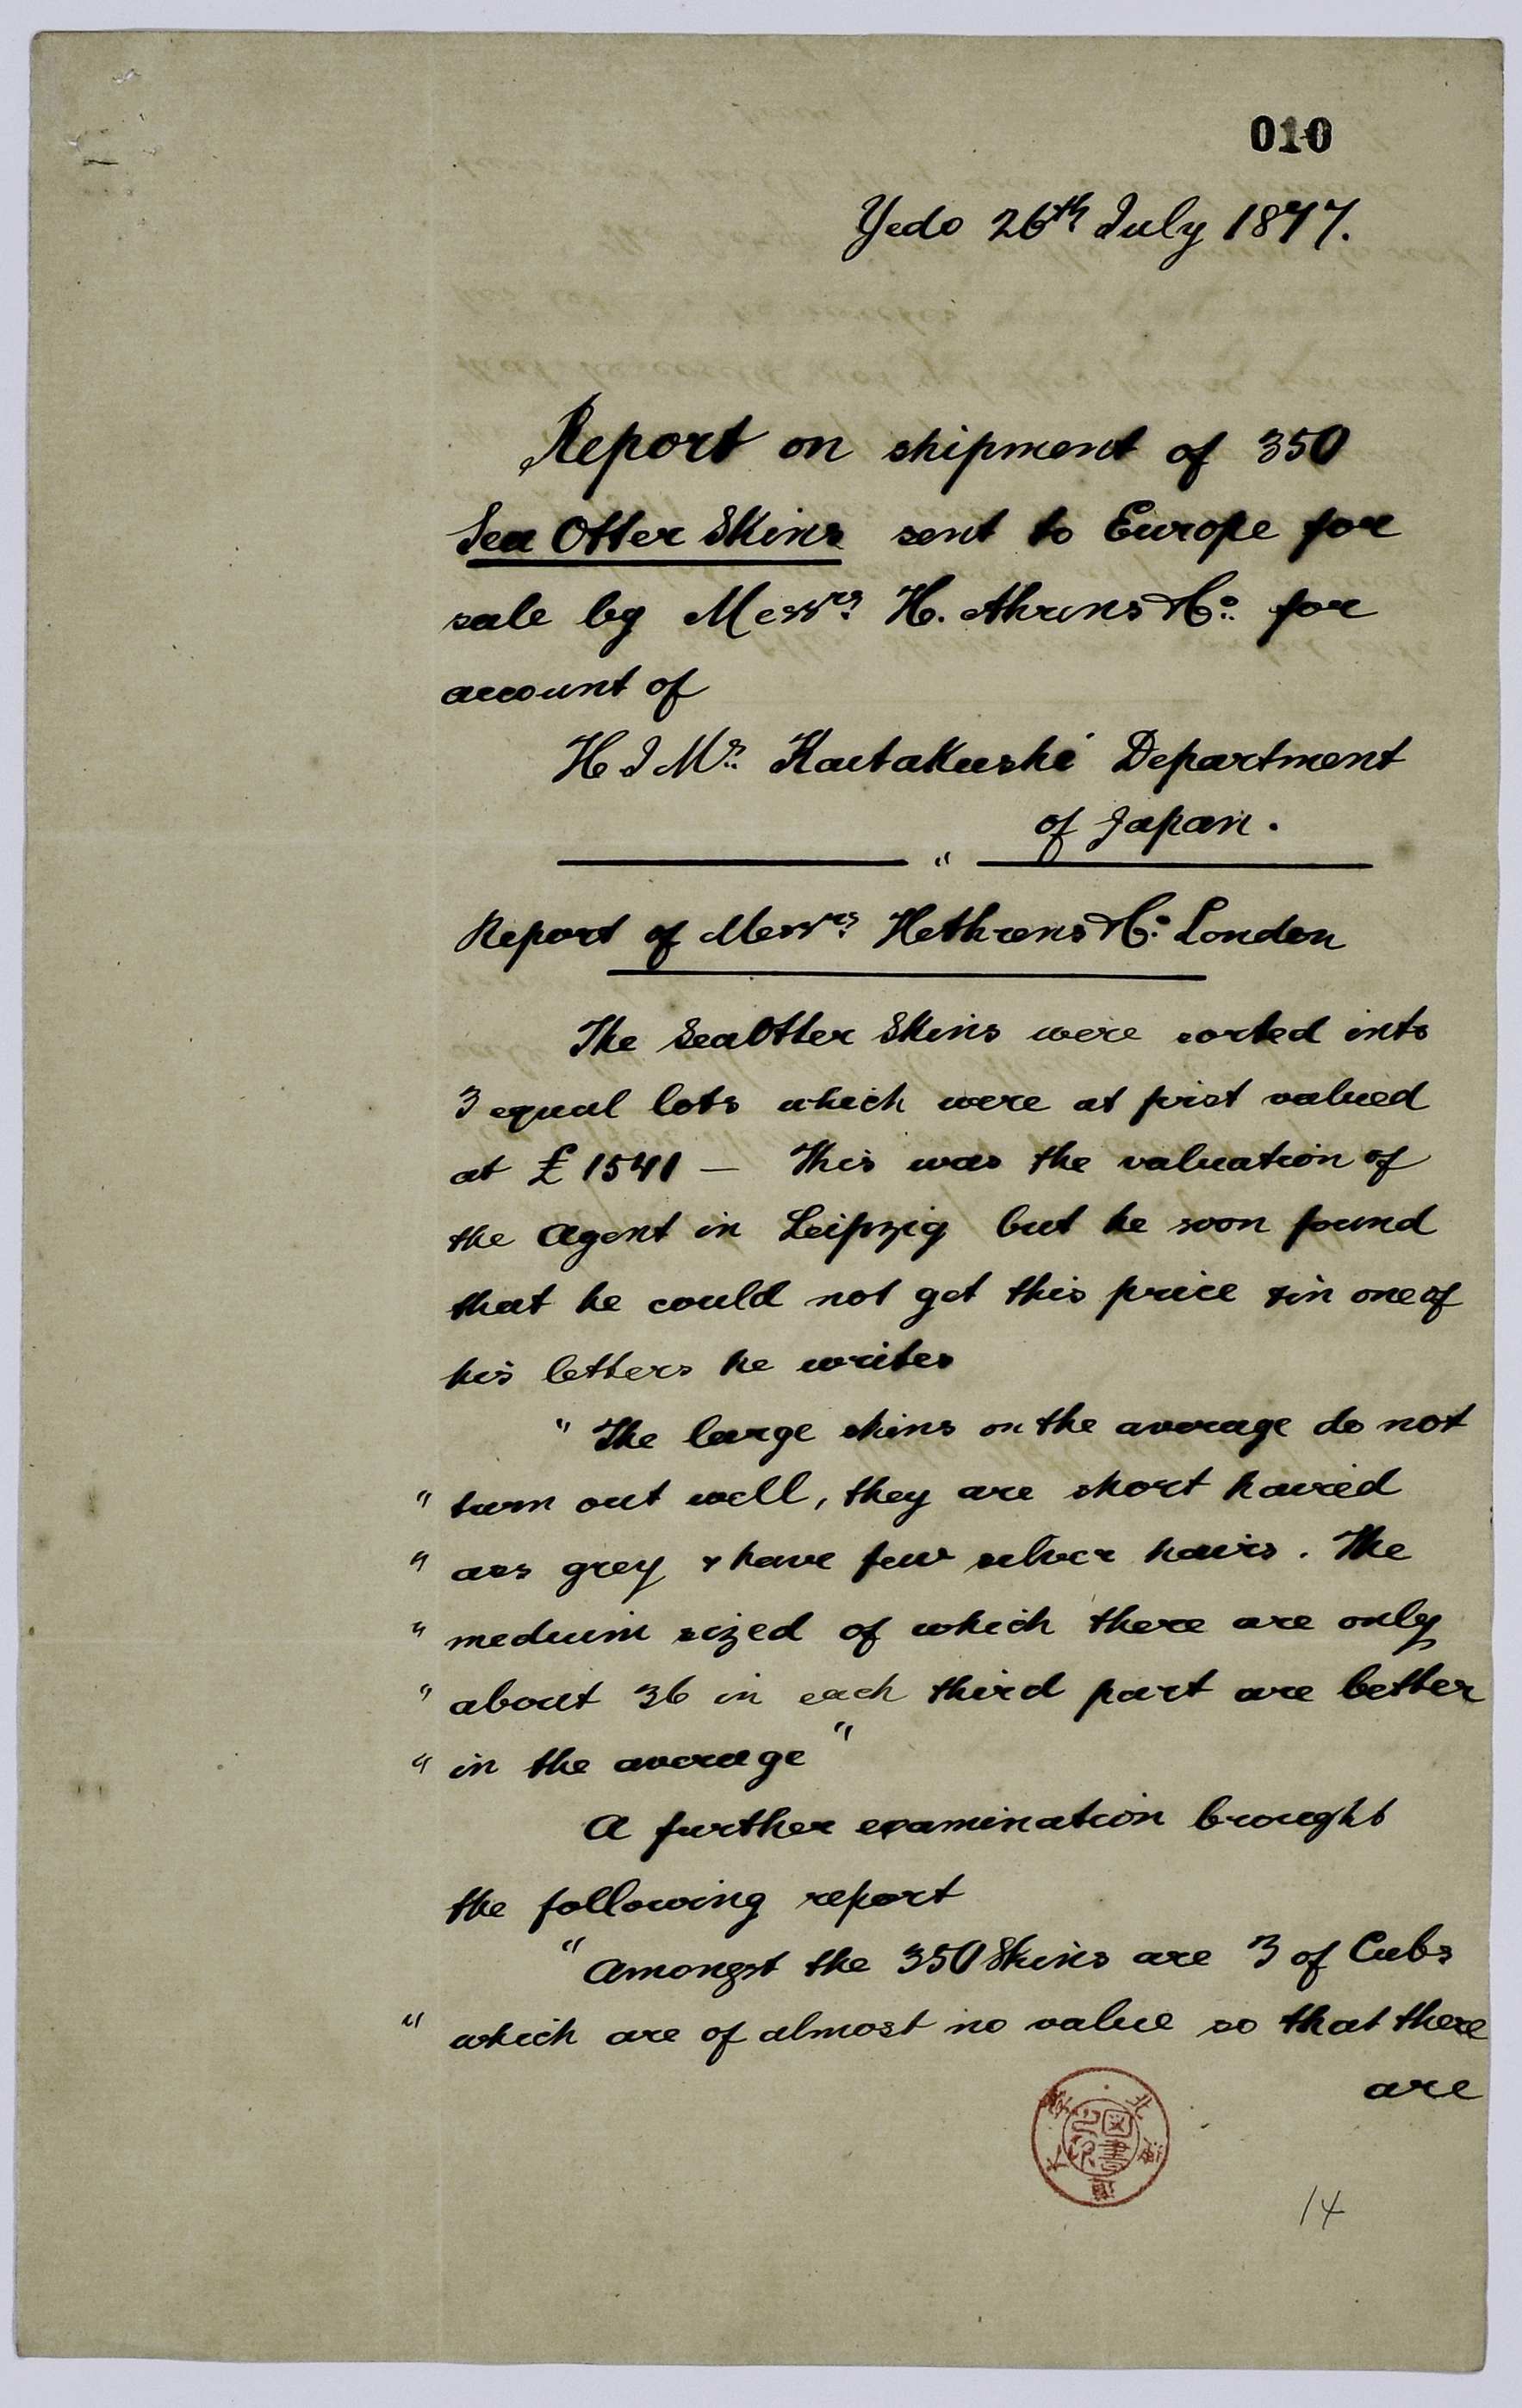 010
Yedo 26th July 1877.
Report on shipment of 350
Sea Otter Skins sent to Europe for
sale by Messrs H. Ahrens & Co. for
account of
H I M's Kaitakushi Department
of Japan.
"
Report of Messrs H Ahrens & Co. London
The Sea Otter Skins were sorted into
3 equal lots which were at first valued
at £ 1541 — This was the valuation of
the Agent in Leipzig but he soon found
that he could not get this price & in one of
his letters he writes
" The large skins on the average do not
" turn out well, they are short haired
" are grey & have few silver hairs. The
" medium sized of which there are only
" about 36 in each third part are better
" in the average "
A further examination brought
the following report
" Amongst the 350 Skins are 3 of Cubs
" which are of almost no value so that there
are
14